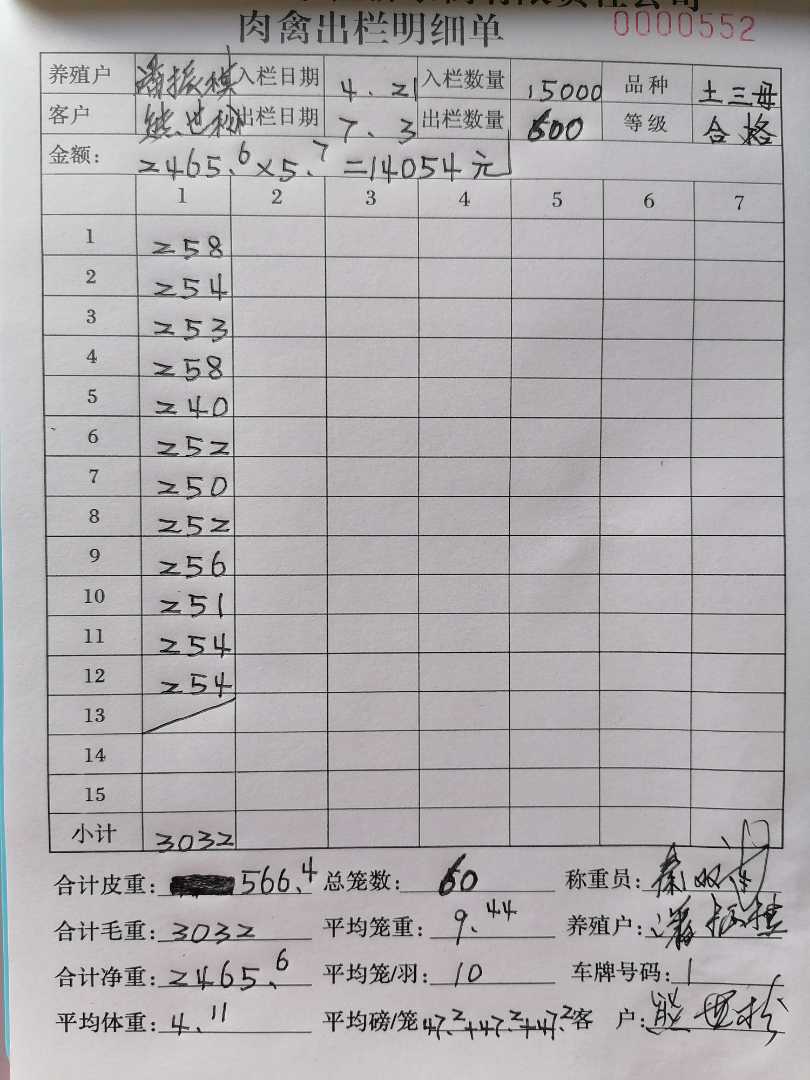 有限责任公司
肉禽出栏明细单 0000552
养殖户 潘振棋 入栏日期 4.21 入栏数量 15000 品种 土三母
客户 熊世松 出栏日期 7.3 出栏数量 600 等级 合格
金额: 2465.6×5.7=14054元
1 2 3 4 5 6 7
1 258
2 254
3 253
4 258
5 240
6 252
7 250
8 252
9 256
10 251
11 254
12 254
13
14
15
小计 3032
合计皮重: 566.4 总笼数: 60 称重员:
合计毛重: 3032 平均笼重: 9.44 养殖户: 潘振棋
合计净重: 2465.6 平均笼/羽: 10 车牌号码: 1
平均体重: 4.11 平均磅/笼 47.2+47.2+47.2 客 户: 熊世松